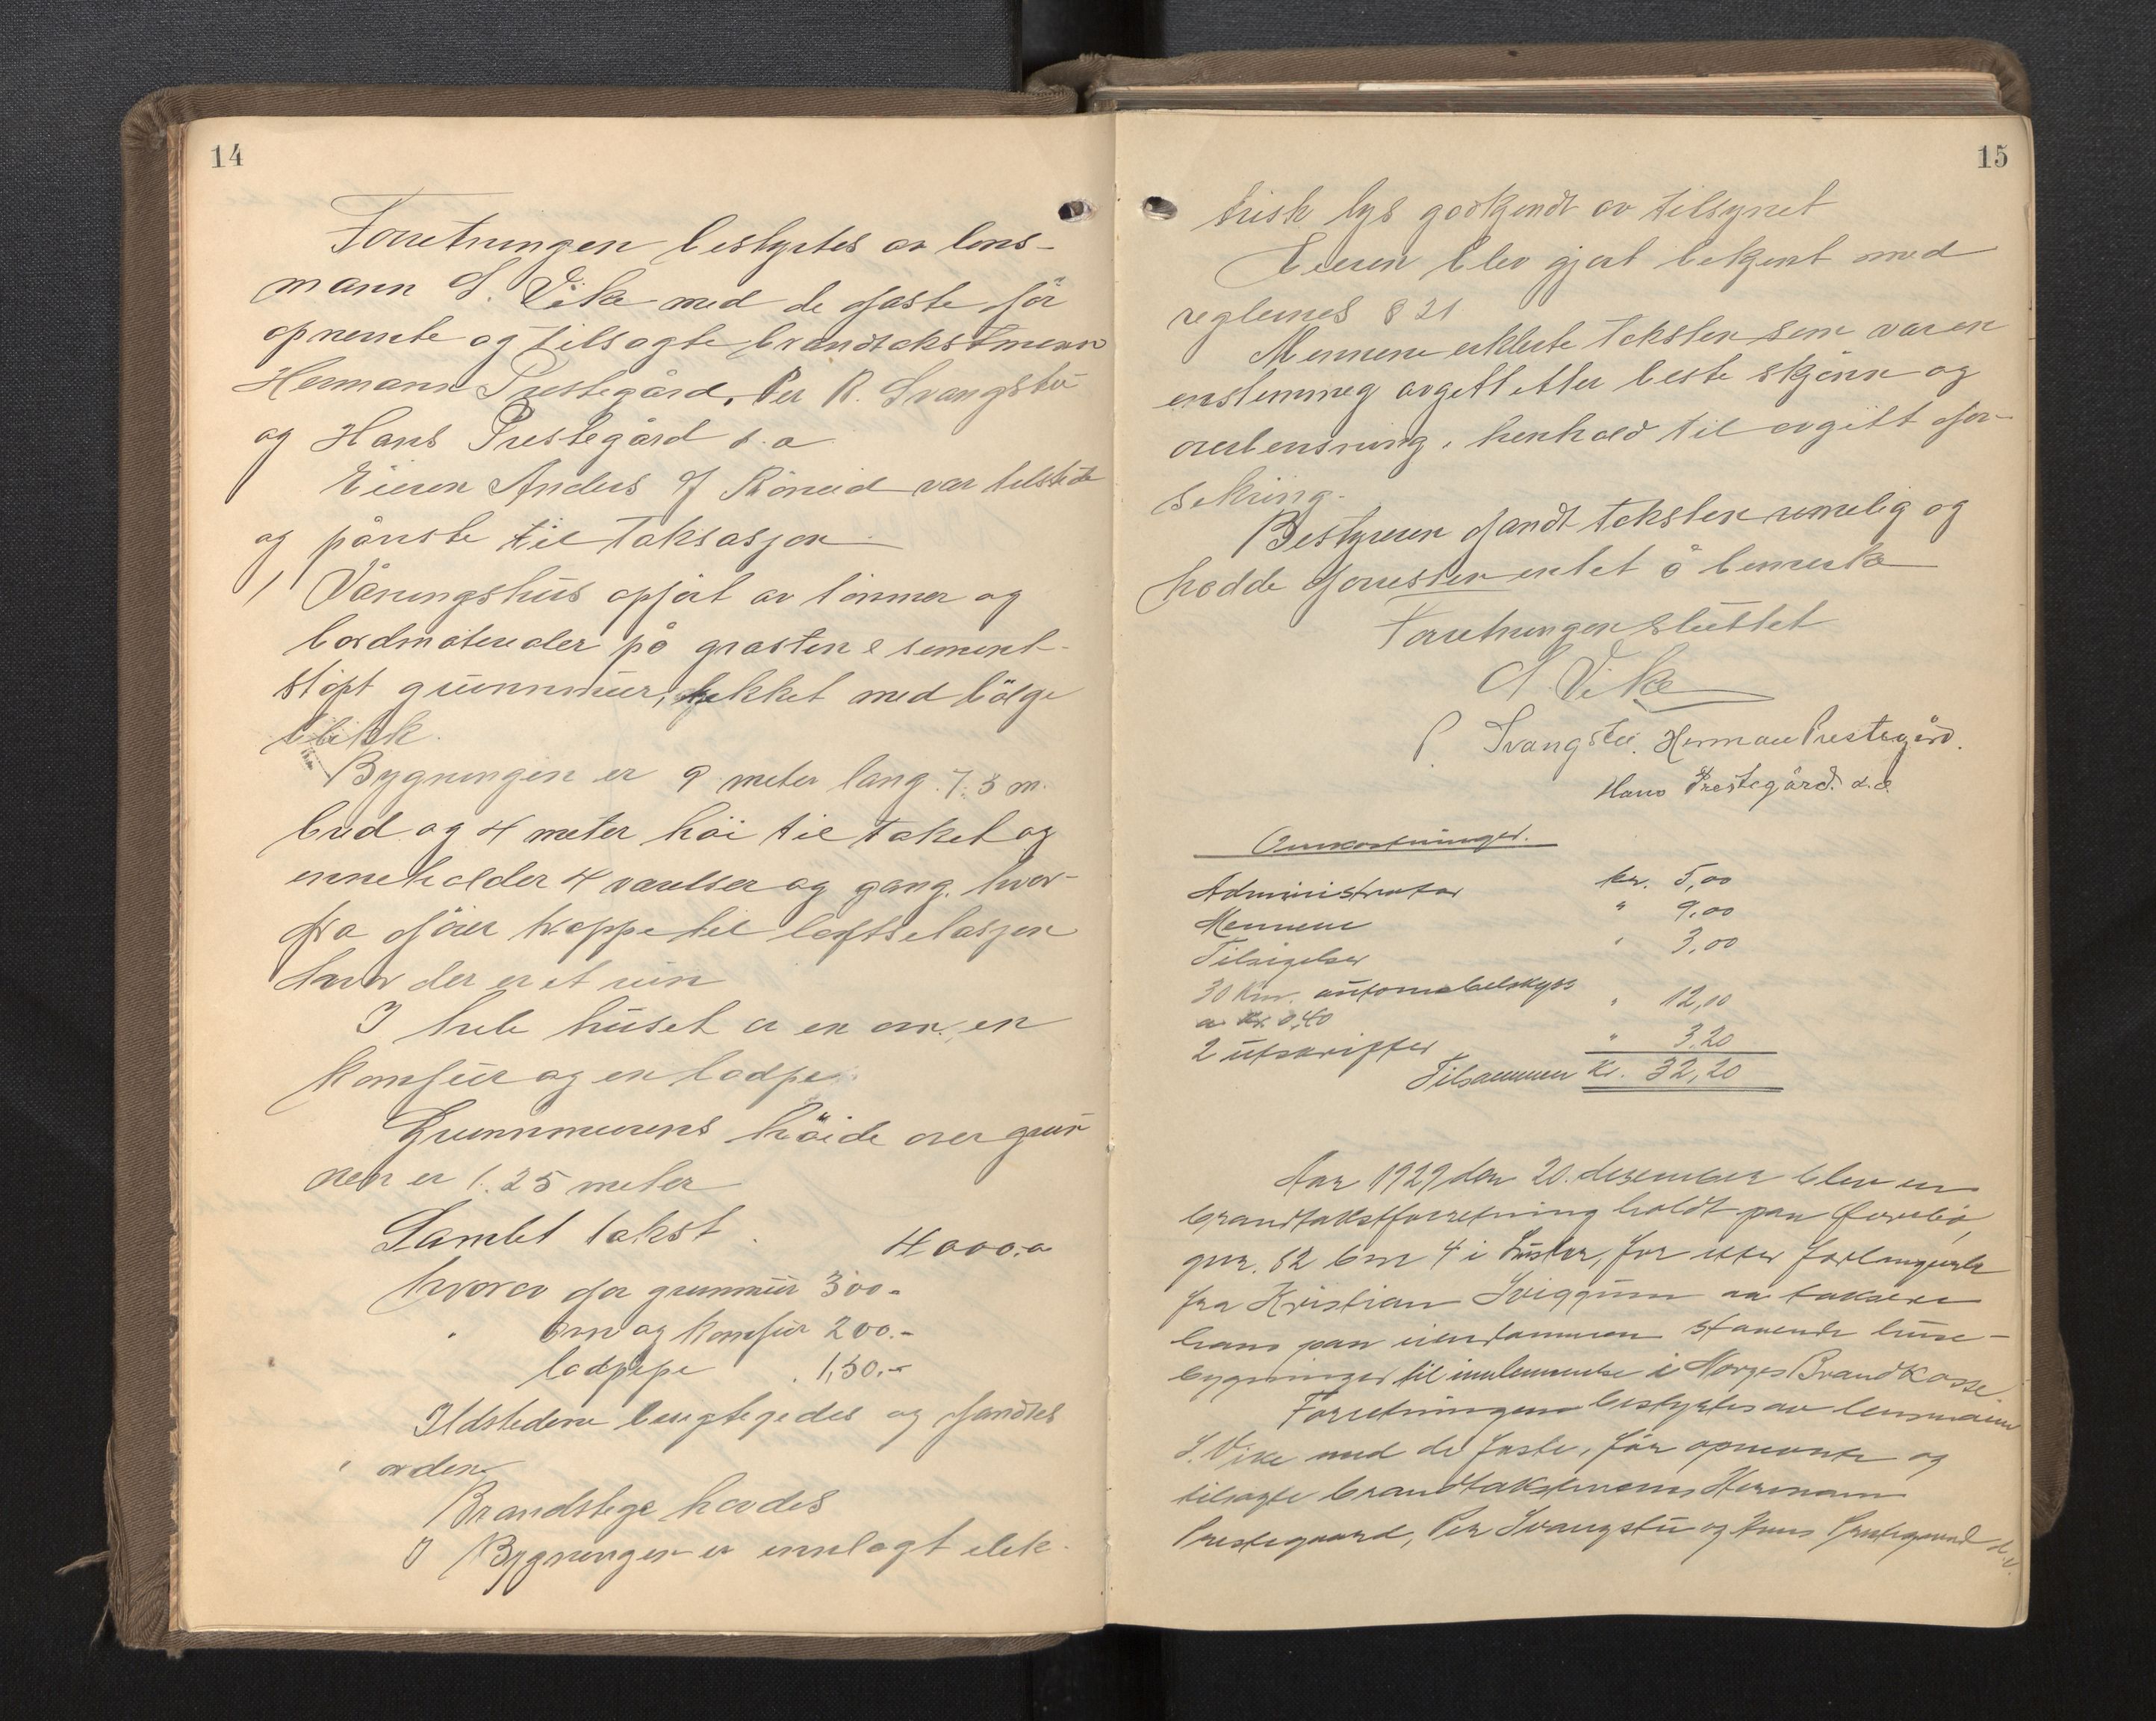 14
Forretningen bestyrtes av lens-
mann S. Vike med de faste för
opnevnte og tilsagte brandtakstmenn
Hermann Prestegård, Per R. Svangstu
og Hans Prestegård d. a
Eieren Anders J Röneid var tilstede
og påviste til taksasjon
1 Våningshus opfört av tömmer og
bordmaterialer på grasten & sement-
stöpt grunnmur, tekket med bölge
blikk.
Bygningen er 9 meter lang 7.5 m.
bred og 4 meter höi til taket og
inneholder 4 værelser og gang, hvor-
fra förer trappe til loftsetasjen
hvor der er et rum
I hele huset er en ovn, en
komfur og en lodpe
Grunnmurens höide over grun
nen er 1.25 meter
Samlet takst 4000.-
hvorav for grunnmur 300.-
" ovn og komfur 200.-
lodpipe 150.-
Ildstedene besigtigedes og fandtes
i orden
Brandstige havdes
I Bygningen er innlagt elek-
15
trisk lys godkjendt av tilsynet
Eieren blev gjort bekjent med
reglenes § 21
Mennene erklerte taksten som var en
enstemmeg avgitt etter beste skjönn og
overbevisning i henhold til avgitt for-
sikring.
Bestyreren fandt taksten rimelig og
hadde forresten intet å bemerke
Forretningen sluttet
S Vike
P. Svangstu. Herman Prestegård.
Hans Prestegård. d.e.
Omkostninger.
Administrator kr. 5,00
Mennene " 9,00
Tilsigelser " 3,00
30 Km. automobilskyss
a kr 0,40 " 12,00
2 utskrifter " 3.20
Tilsammen Kr. 32,20
Aar 1929 den 20. desember blev en
brandtakstforretning holdt paa
gnr. 82 bnr 4 i Luster, for etter forlangende
fra Kristian Sviggum aa taksere
hans paa eiendommen staaende huse-
bygninger til innlemmelse i Norges Brandkasse
Forretningen bestyrtes av lensmann
S. Vike med de faste, för opnevnte og
tilsagte brandtakstmenn Hermann
Prestegaard, Per Svangstu og Hans Prestegaard d.e.